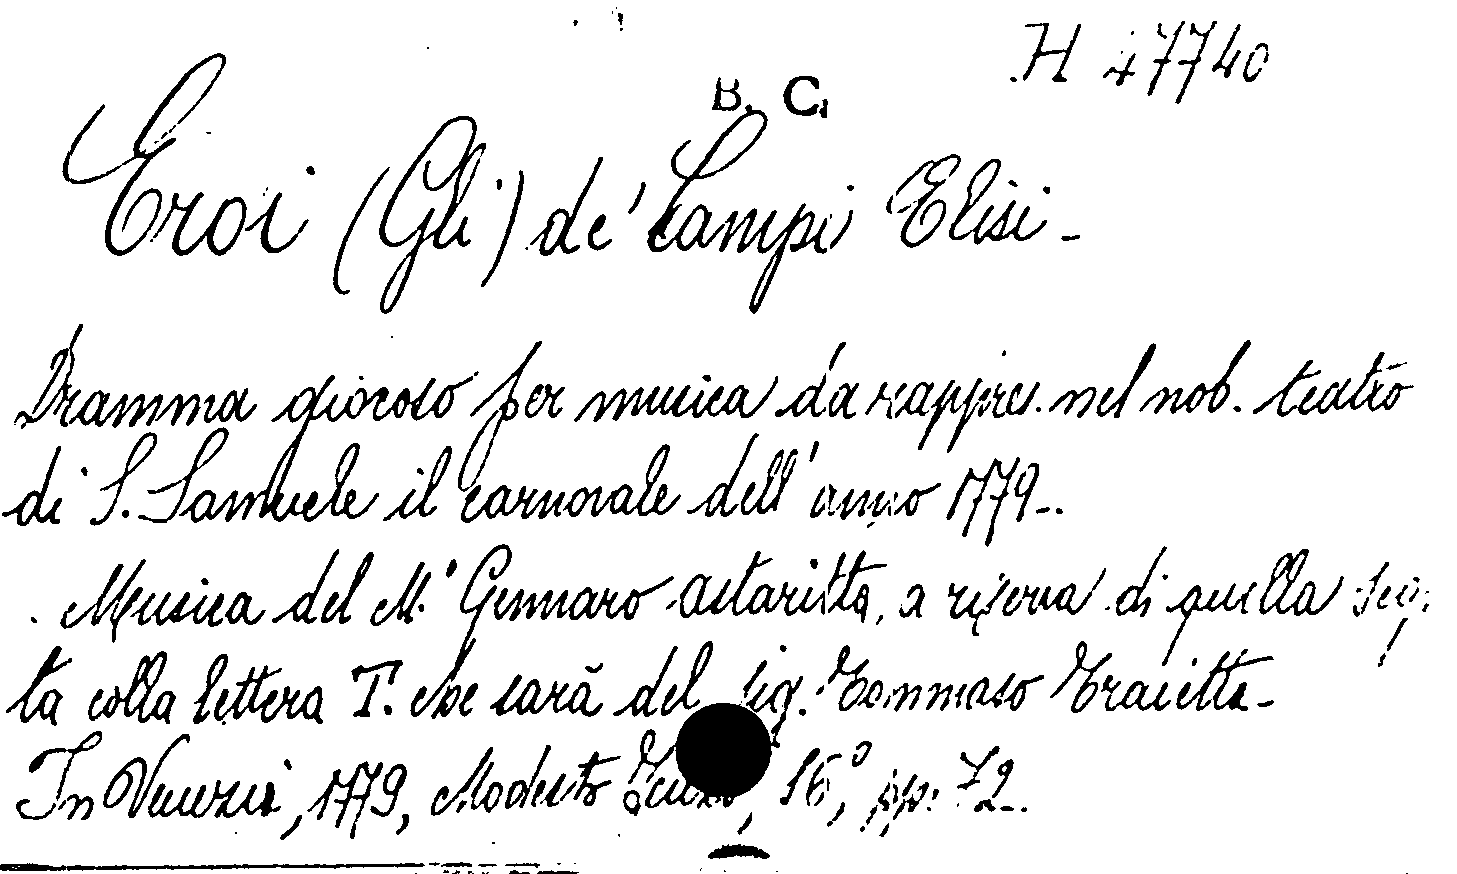 H 47740
B. C.
Eroi (Gli) de' Campi Elisi -
Dramma giocoso per musica da rappres. nel nob. teatro
di S. Samuele il carnovale dell'anno 1779-.
Musica del M.° Gennaro Astaritta, a riserva di quella seg.
ta colla lettera T. che sarà del sig. Tommaso Traietta -
In Venezia, 1779, Modesto Fenzo, 16°, pp. 72-.